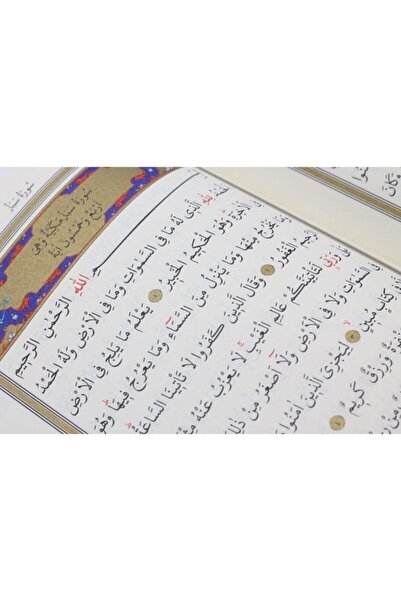 سُورَةُ سَبَأ
سُورَةُ سَبَأٍ مَكِّيَّةٌ وَهِيَ
اَرْبَعٌ وَخَمْسُونَ اٰيَةً
بِسْــــمِ اللّٰهِ الرَّحْمٰنِ الرَّح۪يمِ
لِلّٰهِ الَّذ۪ي لَهُ مَا فِي السَّمٰوَاتِ وَمَا فِي الْاَرْضِ وَلَهُ الْحَمْدُ
الْاٰخِرَةِ وَهُوَ الْحَك۪يمُ الْخَب۪يرُ ١ يَعْلَمُ مَا يَلِجُ فِي الْاَرْضِ
يَخْرُجُ مِنْهَا وَمَا يَنْزِلُ مِنَ السَّمَٓاءِ وَمَا يَعْرُجُ ف۪يهَا وَهُوَ
الْغَفُورُ ٢ وَقَالَ الَّذ۪ينَ كَفَرُوا لَا تَأْت۪ينَا السَّاعَةُ
لَتَأْتِيَنَّكُمْ عَالِمِ الْغَيْبِ لَا يَعْزُبُ عَنْهُ
السَّمٰوَاتِ وَلَا فِي الْاَرْضِ وَلَٓا اَصْغَرُ مِنْ ذٰلِكَ
كِتَابٍ مُب۪ينٍ ٣ لِيَجْزِيَ الَّذ۪ينَ اٰمَنُوا
وَرِزْقٌ كَر۪يمٌ ٤